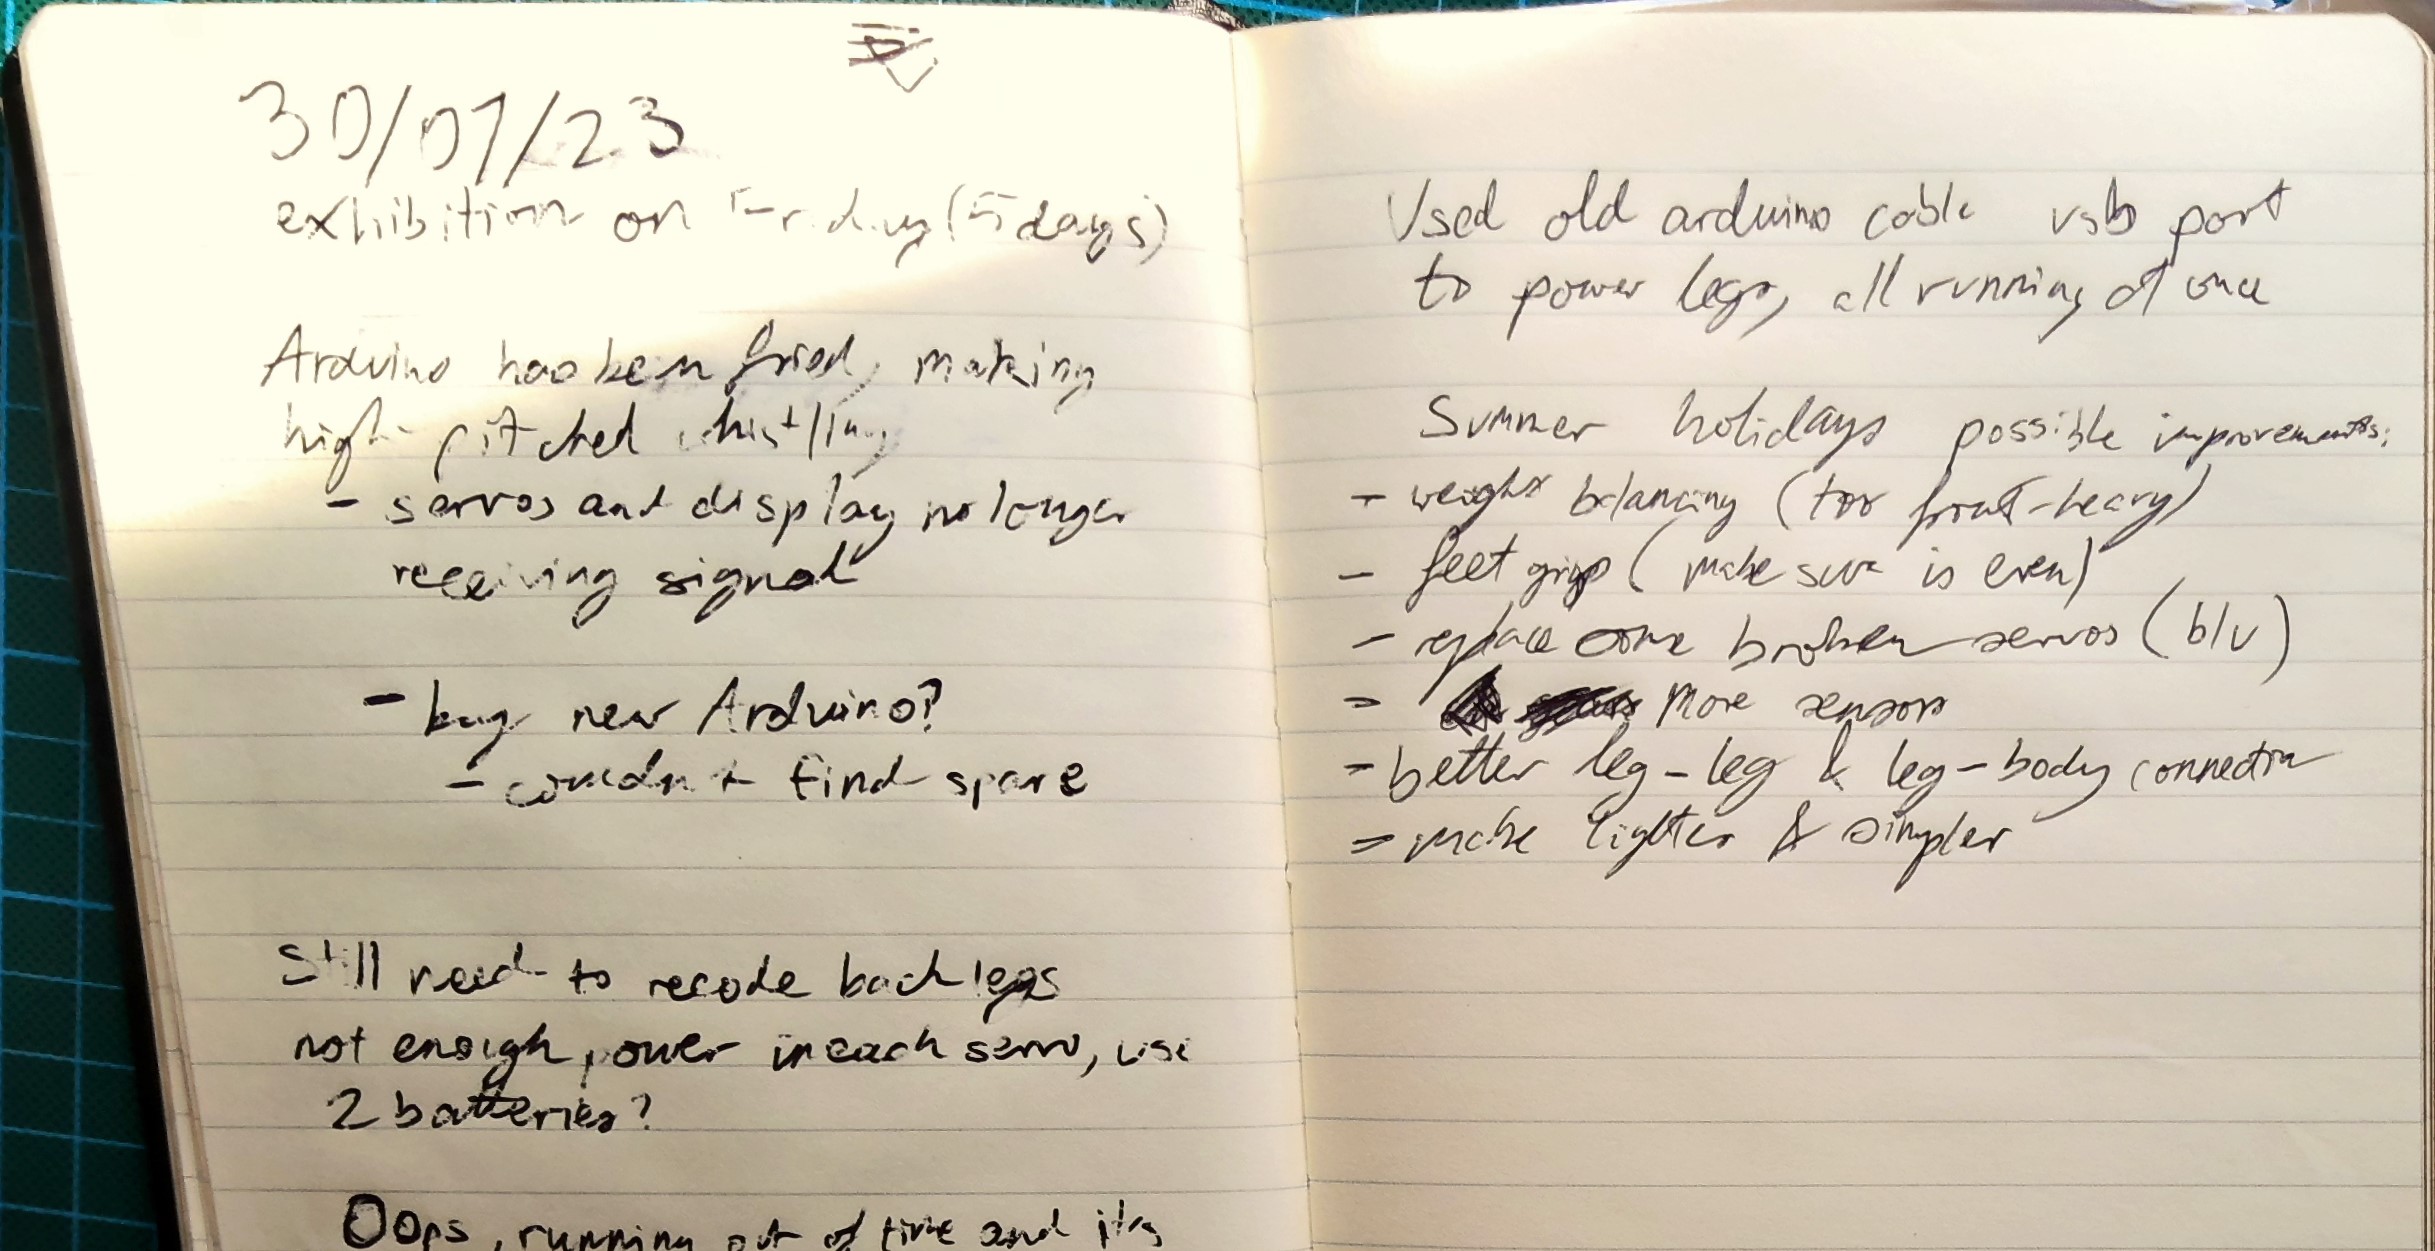 30/07/23
exhibition on Friday (5 days)
Arduino has been fried, making
high-pitched whistling
- servos and display no longer
receiving signal
- buy new Arduino?
- couldn't find spare
Still need to recode back legs
not enough power in each servo, use
2 batteries?
Oops, running out of time and its
Used old arduino cable usb port
to power legs, all running at once
Summer holidays possible improvements:
- weight balancing (too front-heavy)
- feet grip (make sure is even)
- replace some broken servos (b/u)
- More sensors
- better leg-leg & leg-body connection
- make lighter & simpler